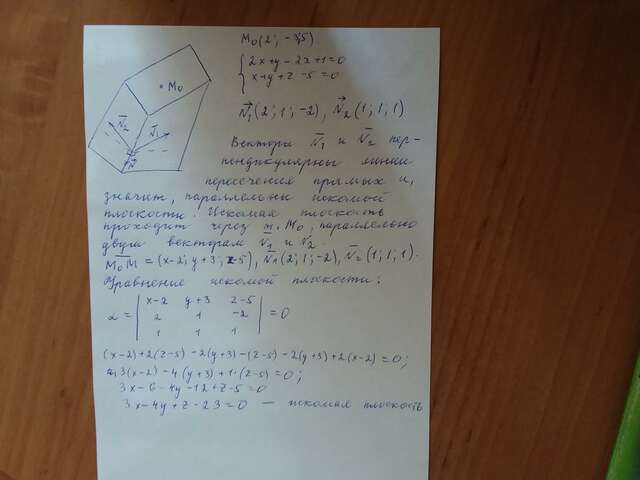 M₀(2; -3;5)
{ 2x+y-2z+1=0
x+y+z-5=0
N⃗₁(2;1;-2), N⃗₂(1;1;1)
M₀
N̄₂
N̄₁
Вектори N̄₁ и N̄₂ пер-
пендикулярны линии
пересечения прямых и,
значит, параллельны искомой
плоскости. Искомая плоскость
проходит через т. M₀, параллельно
двум векторам N̄₁ и N̄₂.
M̄₀M̄ = (x-2; y+3; z-5), N̄₁(2;1;-2), N̄₂(1;1;1).
Уравнение искомой плоскости:
α = | x-2 y+3 z-5 |
| 2 1 -2 | =0
| 1 1 1 |
(x-2)+2(z-5)-2(y+3)-(z-5)-2(y+3)+2(x-2)=0;
3(x-2)-4(y+3)+1·(z-5)=0;
3x-6-4y-12+z-5=0
3x-4y+z-23=0 — искомая плоскость